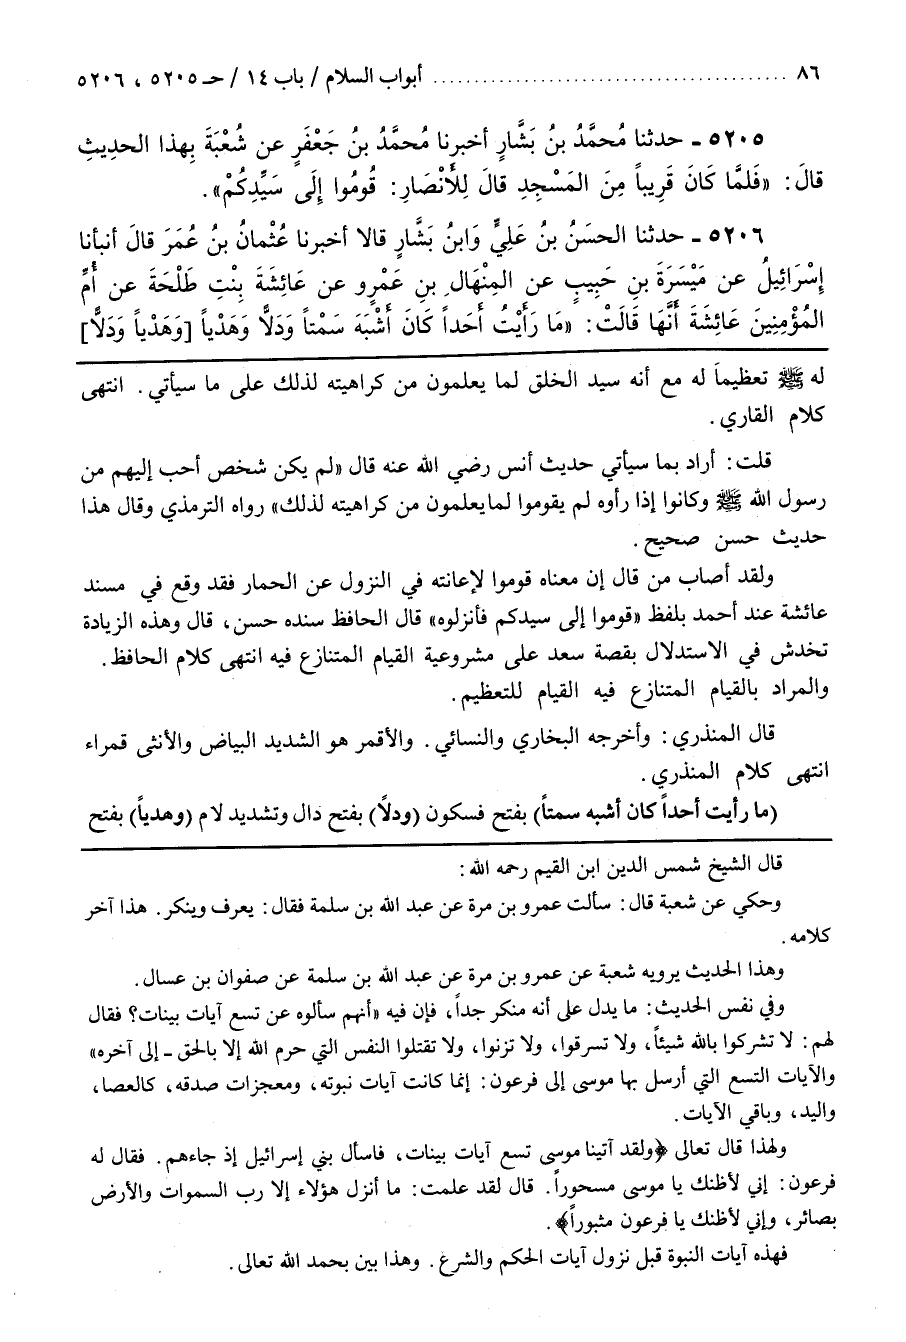 ٨٦ ........................................ أبواب السلام / باب ١٤ / حـ ٥٢٠٥ ، ٥٢٠٦
٥٢٠٥ ـ حدثنا مُحمَّدُ بنُ بَشَّارٍ أخبرنا مُحمَّدُ بنُ جَعْفَرٍ عن شُعْبَةَ بِهذا الحديثِ
قالَ: «فَلمَّا كَانَ قَرِيباً مِنَ المَسْجِدِ قالَ لِلأَنْصَارِ: قُومُوا إلَى سَيِّدِكُمْ».
٥٢٠٦ ـ حدثنا الحسَنُ بنُ عَلِيٍّ وَابنُ بَشَّارٍ قالا أخبرنا عُثْمانُ بنُ عُمَرَ قالَ أنبأنا
إسْرَائِيلُ عن مَيْسَرَةَ بنِ حَبِيبٍ عن المِنْهَالِ بنِ عَمْرٍو عن عَائِشَةَ بِنْتِ طَلْحَةَ عن أُمِّ
المُؤْمِنِينَ عَائِشَةَ أنَّهَا قَالَتْ: «مَا رَأَيْتُ أَحَداً كَانَ أَشْبَهَ سَمْتاً وَدَلًّا وَهَدْياً [وَهَدْياً وَدَلًّا]
له ﷺ تعظيماً له مع أنه سيد الخلق لما يعلمون من كراهيته لذلك على ما سيأتي. انتهى
كلام القاري.
قلت: أراد بما سيأتي حديث أنس رضي الله عنه قال «لم يكن شخص أحب إليهم من
رسول الله ﷺ وكانوا إذا رأوه لم يقوموا لما يعلمون من كراهيته لذلك» رواه الترمذي وقال هذا
حديث حسن صحيح.
ولقد أصاب من قال إن معناه قوموا لإعانته في النزول عن الحمار فقد وقع في مسند
عائشة عند أحمد بلفظ «قوموا إلى سيدكم فأنزلوه» قال الحافظ سنده حسن، قال وهذه الزيادة
تخدش في الاستدلال بقصة سعد على مشروعية القيام المتنازع فيه انتهى كلام الحافظ.
والمراد بالقيام المتنازع فيه القيام للتعظيم.
قال المنذري: وأخرجه البخاري والنسائي. والأقمر هو الشديد البياض والأنثى قمراء
انتهى كلام المنذري.
(ما رأيت أحداً كان أشبه سمتاً) بفتح فسكون (ودلاً) بفتح دال وتشديد لام (وهدياً) بفتح
قال الشيخ شمس الدين ابن القيم رحمه الله:
وحكي عن شعبة قال: سألت عمرو بن مرة عن عبد الله بن سلمة فقال: يعرف وينكر. هذا آخر
كلامه.
وهذا الحديث يرويه شعبة عن عمرو بن مرة عن عبد الله بن سلمة عن صفوان بن عسال.
وفي نفس الحديث: ما يدل على أنه منكر جداً، فإن فيه «أنهم سألوه عن تسع آيات بينات؟ فقال
لهم: لا تشركوا بالله شيئاً، ولا تسرقوا، ولا تزنوا، ولا تقتلوا النفس التي حرم الله إلا بالحق ـ إلى آخره»
والآيات التسع التي أرسل بها موسى إلى فرعون: إنما كانت آيات نبوته، ومعجزات صدقه، كالعصا،
واليد، وباقي الآيات.
ولهذا قال تعالى ﴿ولقد آتينا موسى تسع آيات بينات، فاسأل بني إسرائيل إذ جاءهم. فقال له
فرعون: إني لأظنك يا موسى مسحوراً. قال لقد علمت: ما أنزل هؤلاء إلا رب السموات والأرض
بصائر، وإني لأظنك يا فرعون مثبوراً﴾.
فهذه آيات النبوة قبل نزول آيات الحكم والشرع. وهذا بين بحمد الله تعالى.